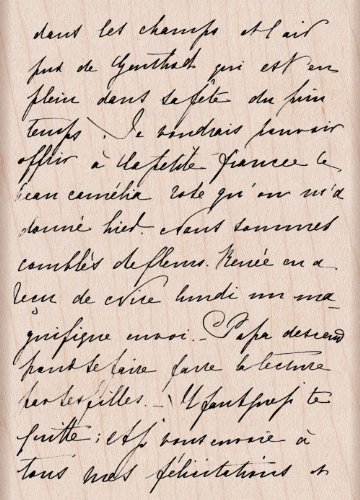 dans les champs et l'air
pur de Genthod qui est en
plein dans sa fête du prin
temps. Je voudrais pouvoir
offrir à la petite france le
beau camélia rose qu'on m'a
donné hier. Nous sommes
comblés de fleurs. Renée en a
reçu de Nice lundi un ma-
gnifique envoi. _ Papa descend
pour se faire faire la lecture
par les filles. _ Il faut que je te
quitte ; et je vous envoie à
tous mes félicitations et